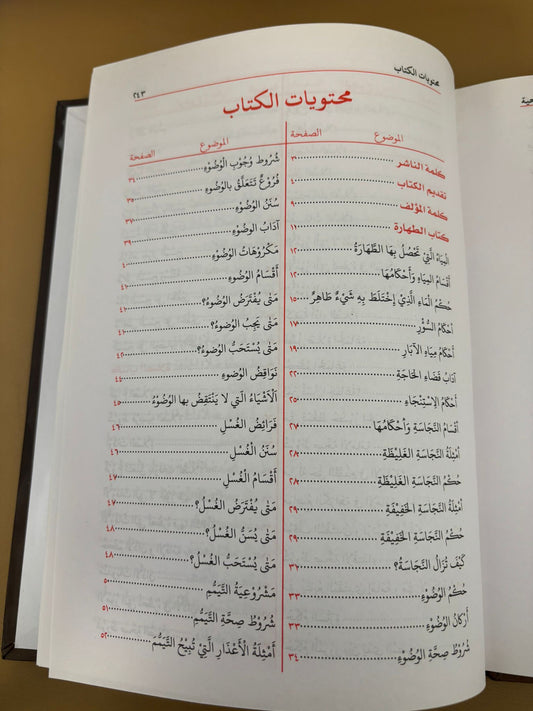 محتويات الكتاب
٢٤٣
محتويات الكتاب
الموضوع الصفحة
كلمة الناشر ٣
تقديم الكتاب ٤
كلمة المؤلف ٩
كتاب الطهارة ١١
اَلْمِيَاهُ الَّتِيْ تَحْصُلُ بِهَا الطَّهَارَةُ ١٢
أَقْسَامُ المِيَاهِ وَأَحْكَامُهَا ١٢
حُكْمُ المَاءِ الَّذِيْ اِخْتَلَطَ بِهِ شَيْءٌ طَاهِرٌ ١٥
أَحْكَامُ السُّؤْرِ ١٧
أَحْكَامُ مِيَاهِ الآبَارِ ١٩
آدَابُ قَضَاءِ الحَاجَةِ ٢٢
أَحْكَامُ الاِسْتِنْجَاءِ ٢٥
أَقْسَامُ النَّجَاسَةِ وَأَحْكَامُهَا ٢٧
أَمْثِلَةُ النَّجَاسَةِ الغَلِيْظَةِ ٢٨
حُكْمُ النَّجَاسَةِ الغَلِيْظَةِ ٢٨
أَمْثِلَةُ النَّجَاسَةِ الخَفِيْفَةِ ٢٩
حُكْمُ النَّجَاسَةِ الخَفِيْفَةِ ٢٩
كَيْفَ تُزَالُ النَّجَاسَةُ؟ ٣٢
حُكْمُ الوُضُوْءِ ٣٣
أَرْكَانُ الوُضُوْءِ ٣٣
شُرُوْطُ صِحَّةِ الوُضُوْءِ ٣٤
الموضوع الصفحة
شُرُوط وُجُوْبِ الْوُضُوْءِ ٣٤
فُرُوْعٌ تَتَعَلَّقُ بِالوُضُوْءِ ٣٥
سُنَنُ الوُضُوْءِ ٣٧
آدَابُ الوُضُوْءِ ٣٩
مَكْرُوْهَاتُ الوُضُوْءِ ٤٠
أَقْسَامُ الوُضُوْءِ ٤٠
مَتَى يُفْتَرَضُ الوُضُوْءُ؟ ٤١
مَتَى يَجِبُ الوُضُوْءُ؟ ٤١
مَتَى يُسْتَحَبُّ الوُضُوءُ؟ ٤٢
نَوَاقِضُ الوُضُوءِ ٤٤
اَلْأَشْيَاءُ الَّتِي لا يَنْتَقِضُ بها الوُضُوْءُ ٤٥
فَرَائِضُ الغُسْلِ ٤٦
سُنَنُ الْغُسْلِ ٤٦
أَقْسَامُ الْغُسْلِ ٤٧
مَتَى يُفْتَرَضُ الْغُسْلُ؟ ٤٧
مَتَى يُسَنُّ الغُسْلُ؟ ٤٨
مَتَى يُسْتَحَبُّ الغُسْلُ؟ ٤٨
مَشْرُوْعِيَّةُ التَّيَمُّمِ ٥٠
شُرُوْطُ صِحَّةِ التَّيَمُّمِ ٥١
أَمْثِلَةُ الْأَعْذَارِ الَّتِيْ تُبِيْحُ التَّيَمُّمَ ٥٢